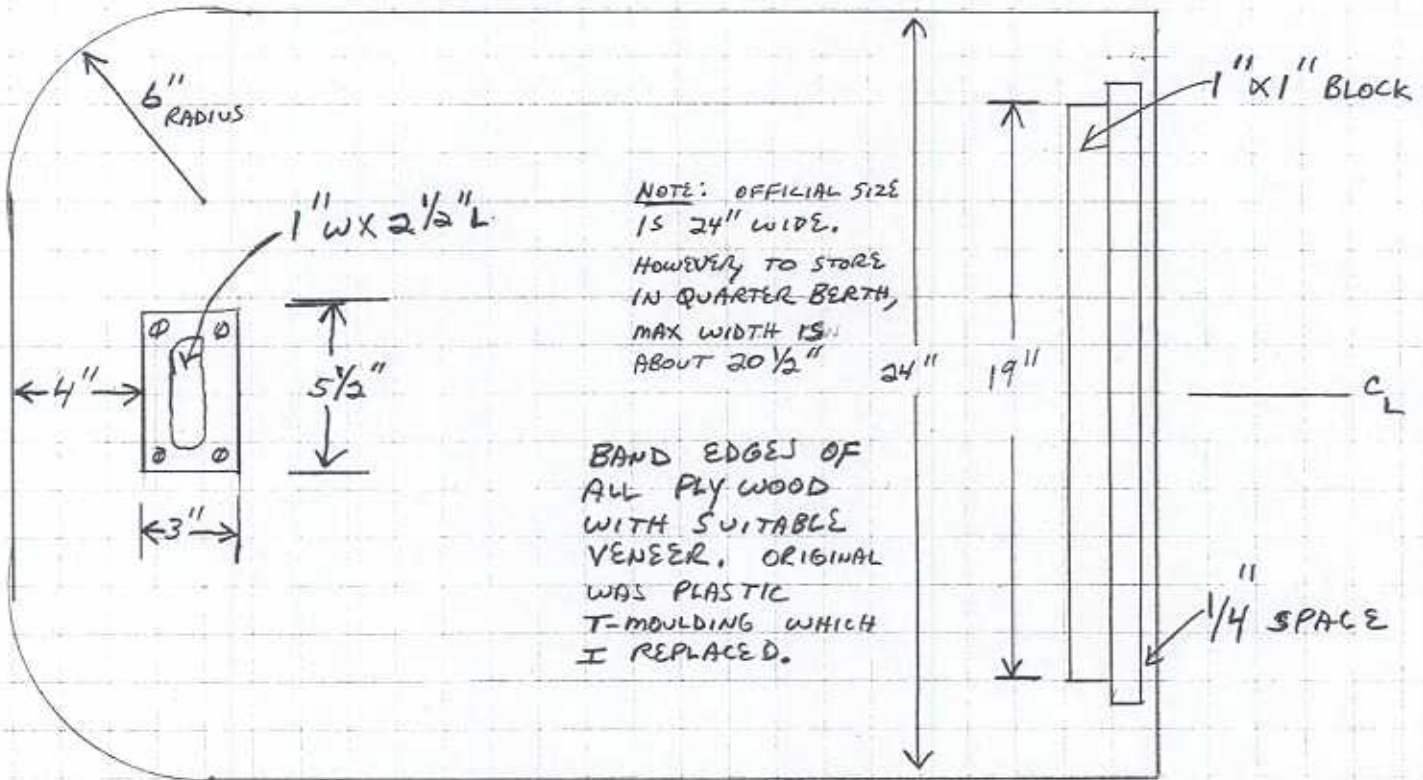 6"
RADIUS
1" W X 2 1/2" L
4"
5 1/2"
3"
NOTE: OFFICIAL SIZE
IS 24" WIDE.
HOWEVER, TO STORE
IN QUARTER BERTH,
MAX WIDTH IS
ABOUT 20 1/2"
BAND EDGES OF
ALL PLY WOOD
WITH SUITABLE
VENEER. ORIGINAL
WAS PLASTIC
T-MOULDING WHICH
I REPLACED.
24"
19"
1" X 1" BLOCK
CL
1/4" SPACE